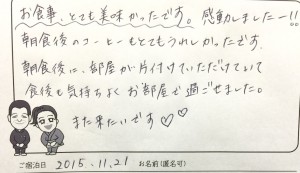 お食事、とても美味かったです。感動しましたー!!
朝食後のコーヒーもとてもうれしかったです。
朝食後に、部屋が片付けていただけてて
食後も気持ちよくお部屋で過ごせました。
また来たいです♡♡
ご宿泊日 2015.11.21 お名前(匿名可)